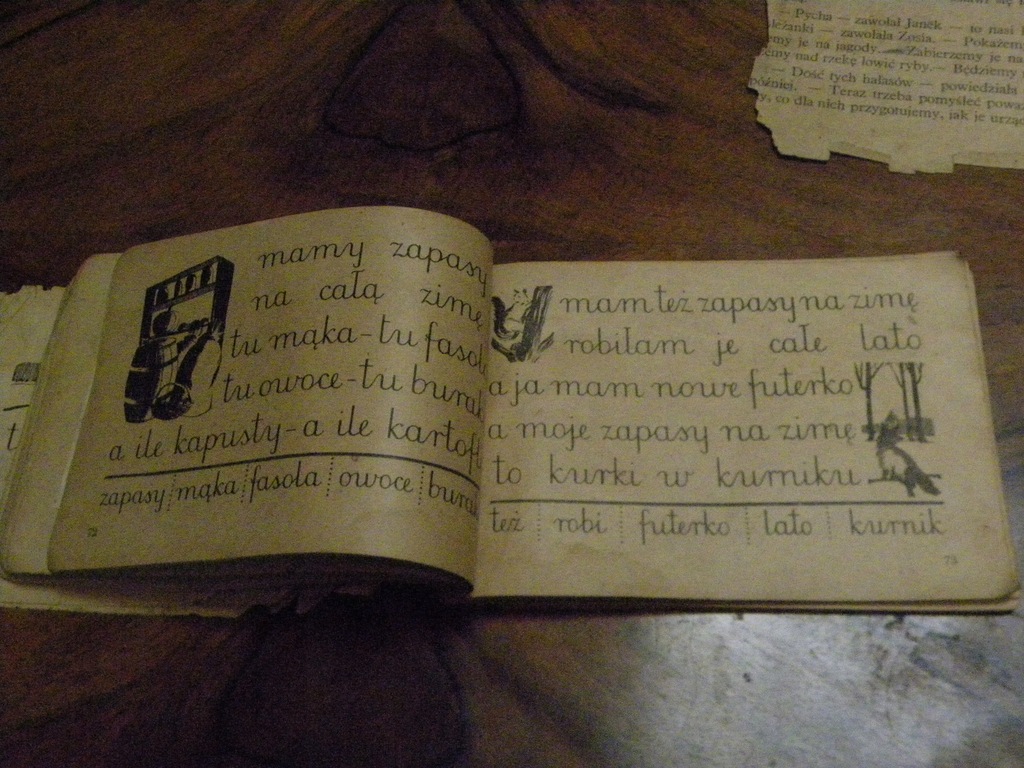 — Pycha — zawołał Janek — to nasi
— zawołała Zosia. — Pokażem
je na jagody. — Zabierzemy je na
nad rzekę łowić ryby. — Będziemy
— Dość tych hałasów — powiedziała
później. — Teraz trzeba pomyśleć
co dla nich przygotujemy, jak je
mamy zapasy
na całą zimę
tu mąka-tu fasol
tu owoce-tu burak
a ile kapusty-a ile kartofl
zapasy mąka fasola owoce burak
72
mam też zapasy na zimę
robiłam je całe lato
a ja mam nowe futerko
a moje zapasy na zimę
to kurki w kurniku
też robi futerko lato kurnik
73
t